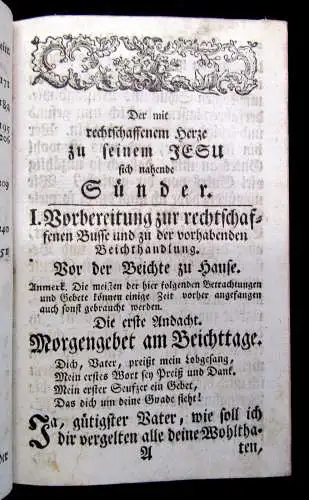 Der mit
rechtschaffenem Herze
zu seinem JESU
sich nahende
Sünder.
I. Vorbereitung zur rechtschaf-
fenen Busse und zu der vorhabenden
Beichthandlung.
Vor der Beichte zu Hause.
Anmerk. Die meisten der hier folgenden Betrachtungen
und Gebete können einige Zeit vorher angefangen
auch sonst gebraucht werden.
Die erste Andacht.
Morgengebet am Beichttage.
Dich, Vater, preißt mein Lobgesang,
Mein erstes Wort sey Preiß und Dank.
Mein erster Seufzer ein Gebet,
Das dich um deine Gnade fleht!
Ja, gütigster Vater, wie soll ich
dir vergelten alle deine Wohltha-
A ten,
171
184
195
206
209